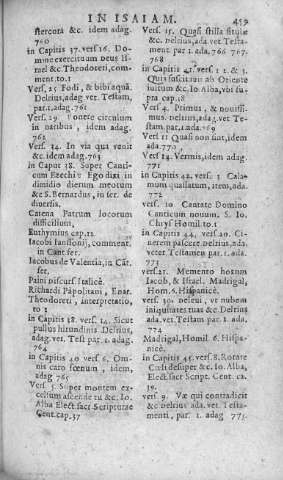 IN ISAIAM. 459
stercora &c. idem adag.
760
in Capitis 37. vers 16. Do-
mine exercituum Deus Is-
rael &c Theodoreti, com-
ment. to.1
Vers. 25 Fodi, & bibi aquā.
Delrius, adag vet. Testam,
par 1. adag. 761
Vers. 29 Ponere circulum
in naribus, idem adag.
762
Vers. 34. In via qua venit
&c. idem adag. 763
in Caput 38. Super Canti-
cum Ezechiæ Ego dixi in
dimidio dierum meorum
&c S. Bernardus, in ser. de
diversis.
Catena Patrum locorum
difficilium.
Euthymius cap. 12
Iacobi Iansonij, comment.
in Cant. ser.
Iacobus de Valentia, in Cāt.
ser.
Paini Discursi Italicè.
Richardi Pāpolitani, Enar.
Theodoreti, interpretatio,
to 1
in Capitis 18 vers. 14. Sicut
pullus hirundinis Delrius,
adag. vet. Test par 1. adag.
764
in Capitis 40 vers 6. Om-
nis caro fœnum, idem,
adag 765
Vers. 9 Super montem ex-
cellum ascende tu &c. Io.
Alba Elect. sacr Scripturae
Cent. cap. 37
Vers. 15. Quasi stilla situlæ
&c Delrius, ada. vet. Testa-
ment par. 1. ada. 766 767.
768
in Capitis 41. vers 1 2. & 3.
Quis suscitavit ab Oriente
iustum &c Io. Alba, ubi su-
pra cap. 18
Vers 4. Primus, & novissi-
mus. delrius, adag. vet Te-
stam. par. 1. ada. 769
Vers 11 Quasi non sint, idem
ada. 770
Vers 14. Vermis, idem adag.
771
in Capitis 42. vers. 3 Cala-
mum quassatum, item, ada.
772
vers. 10 Cantate Domino
Canticum novum S. Io.
Chrys Homil. to. 1
in Capitis 44, vers. 20. Ci-
nerem pascere Delrius, ada.
vet. Testamen par. 1. ada.
773
vers. 21. Memento horum
Iacob, & Israel. Madrigal,
Hom. 6. Hispanicè.
vers. 30. delevi, ut nubem
iniquitates tuas &c Delrius
ada. vet. Testam par. 1. ada.
774
Madrigal, Homil. 6. Hispa-
nicè.
in Capitis 45. vers. 8. Rotate
Cœli desuper &c. Io. Alba,
Elect. sacr Script. Cent. ca.
39.
vers 9. Væ qui contradicit
&c delrius ada. vet. Testa-
menti, par. 1. adag 775.